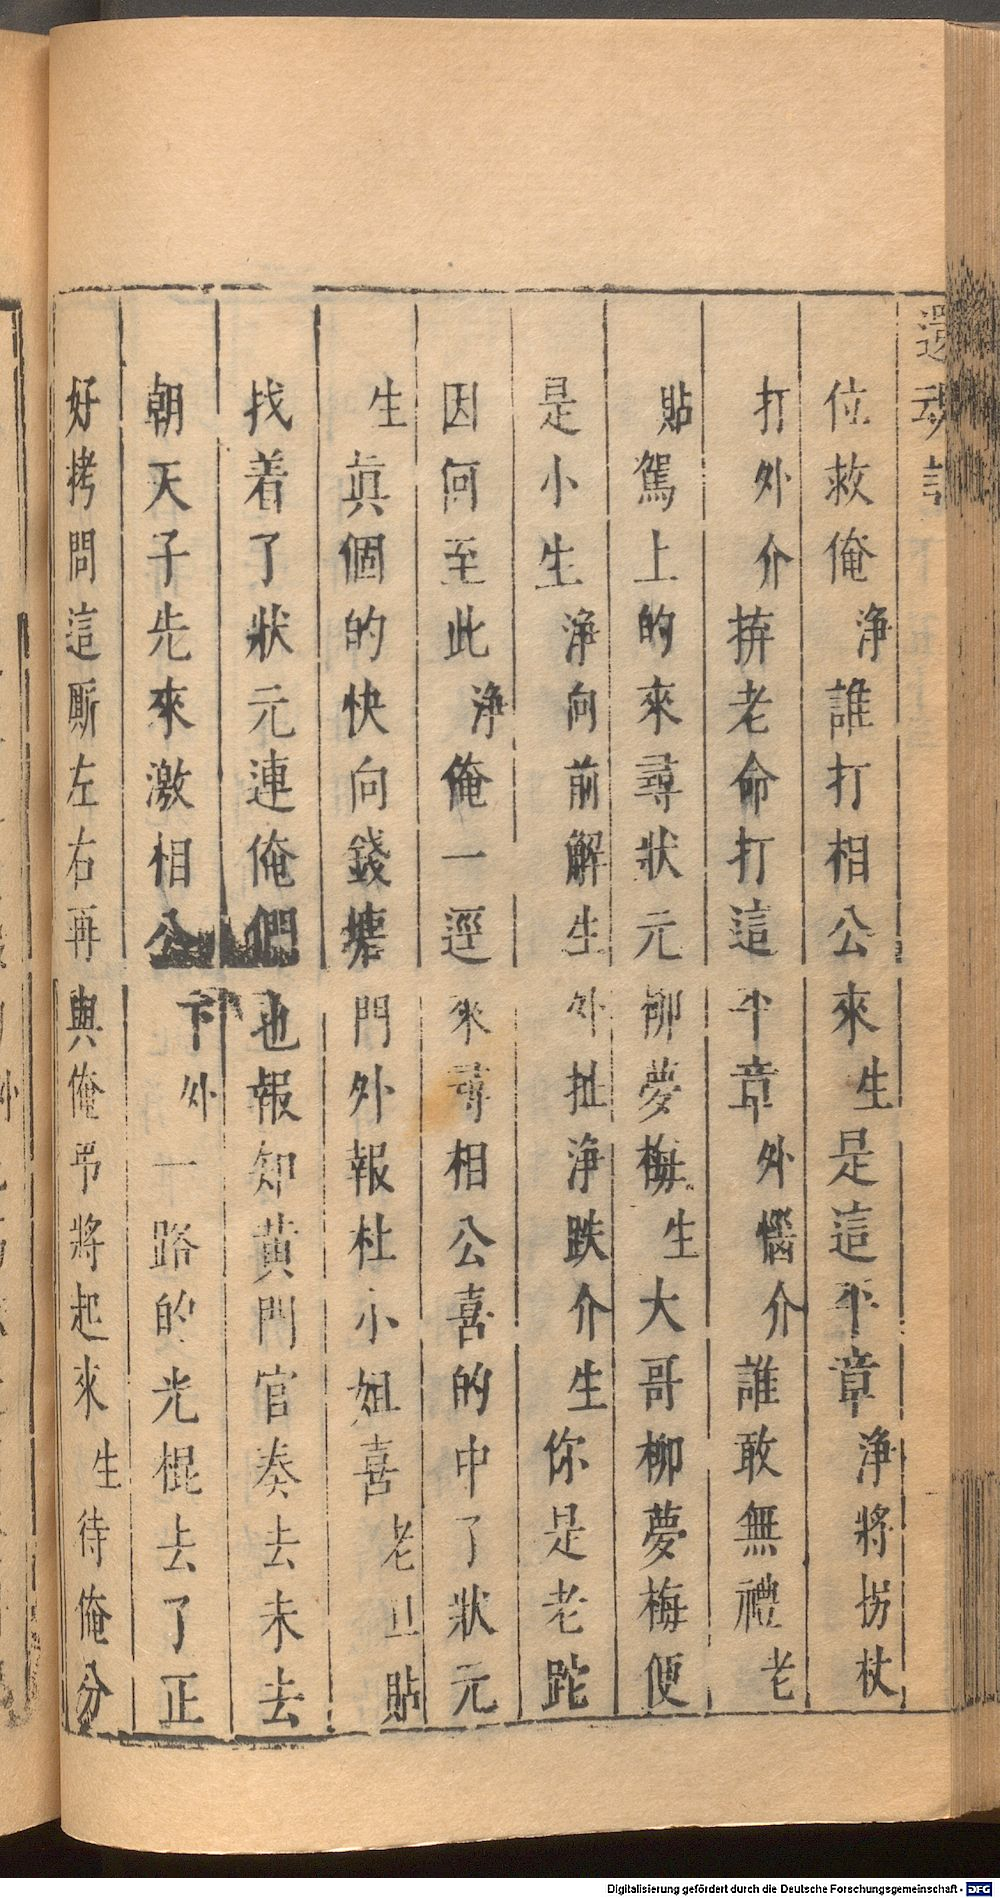 還魂記
位救俺淨誰打相公來生是這平章淨將拐杖
打外介拚老命打這平章外惱介誰敢無禮老
貼駕上的來尋狀元柳夢梅生大哥柳夢梅便
是小生淨向前解生外扯淨跌介生你是老跎
因何至此淨俺一逕來尋相公喜的中了狀元
生眞個的快向錢塘門外報杜小姐喜老旦貼
找着了狀元連俺們也報知黄門官奏去未去
朝天子先來激相公下外一路的光棍去了正
好拷問這厮左右再與俺吊將起來生待俺分
Digitalisierung gefördert durch die Deutsche Forschungsgemeinschaft - DFG